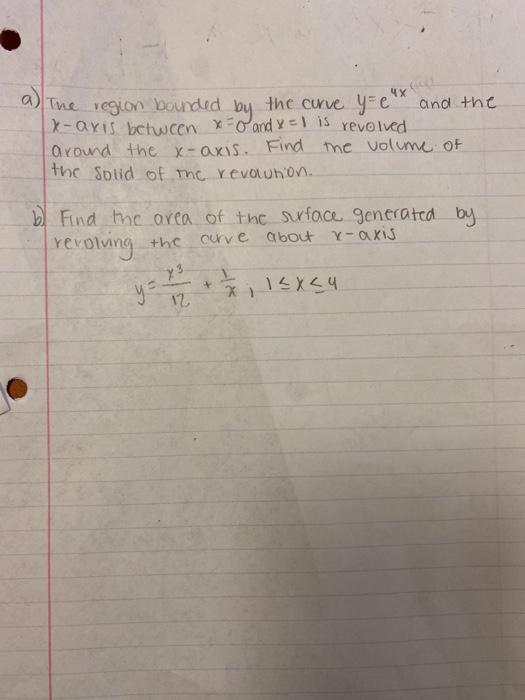 a) The region bounded by the curve y=e^4x and the
x-axis between x=0 and x=1 is revolved
around the x-axis. Find the volume of
the solid of the revolution.
b) Find the area of the surface generated by
revolving the curve about x-axis
y= x^3/12 + 1/x, 1≤x≤4